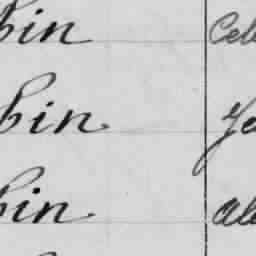 bin Cel
bin Ja
bin Al